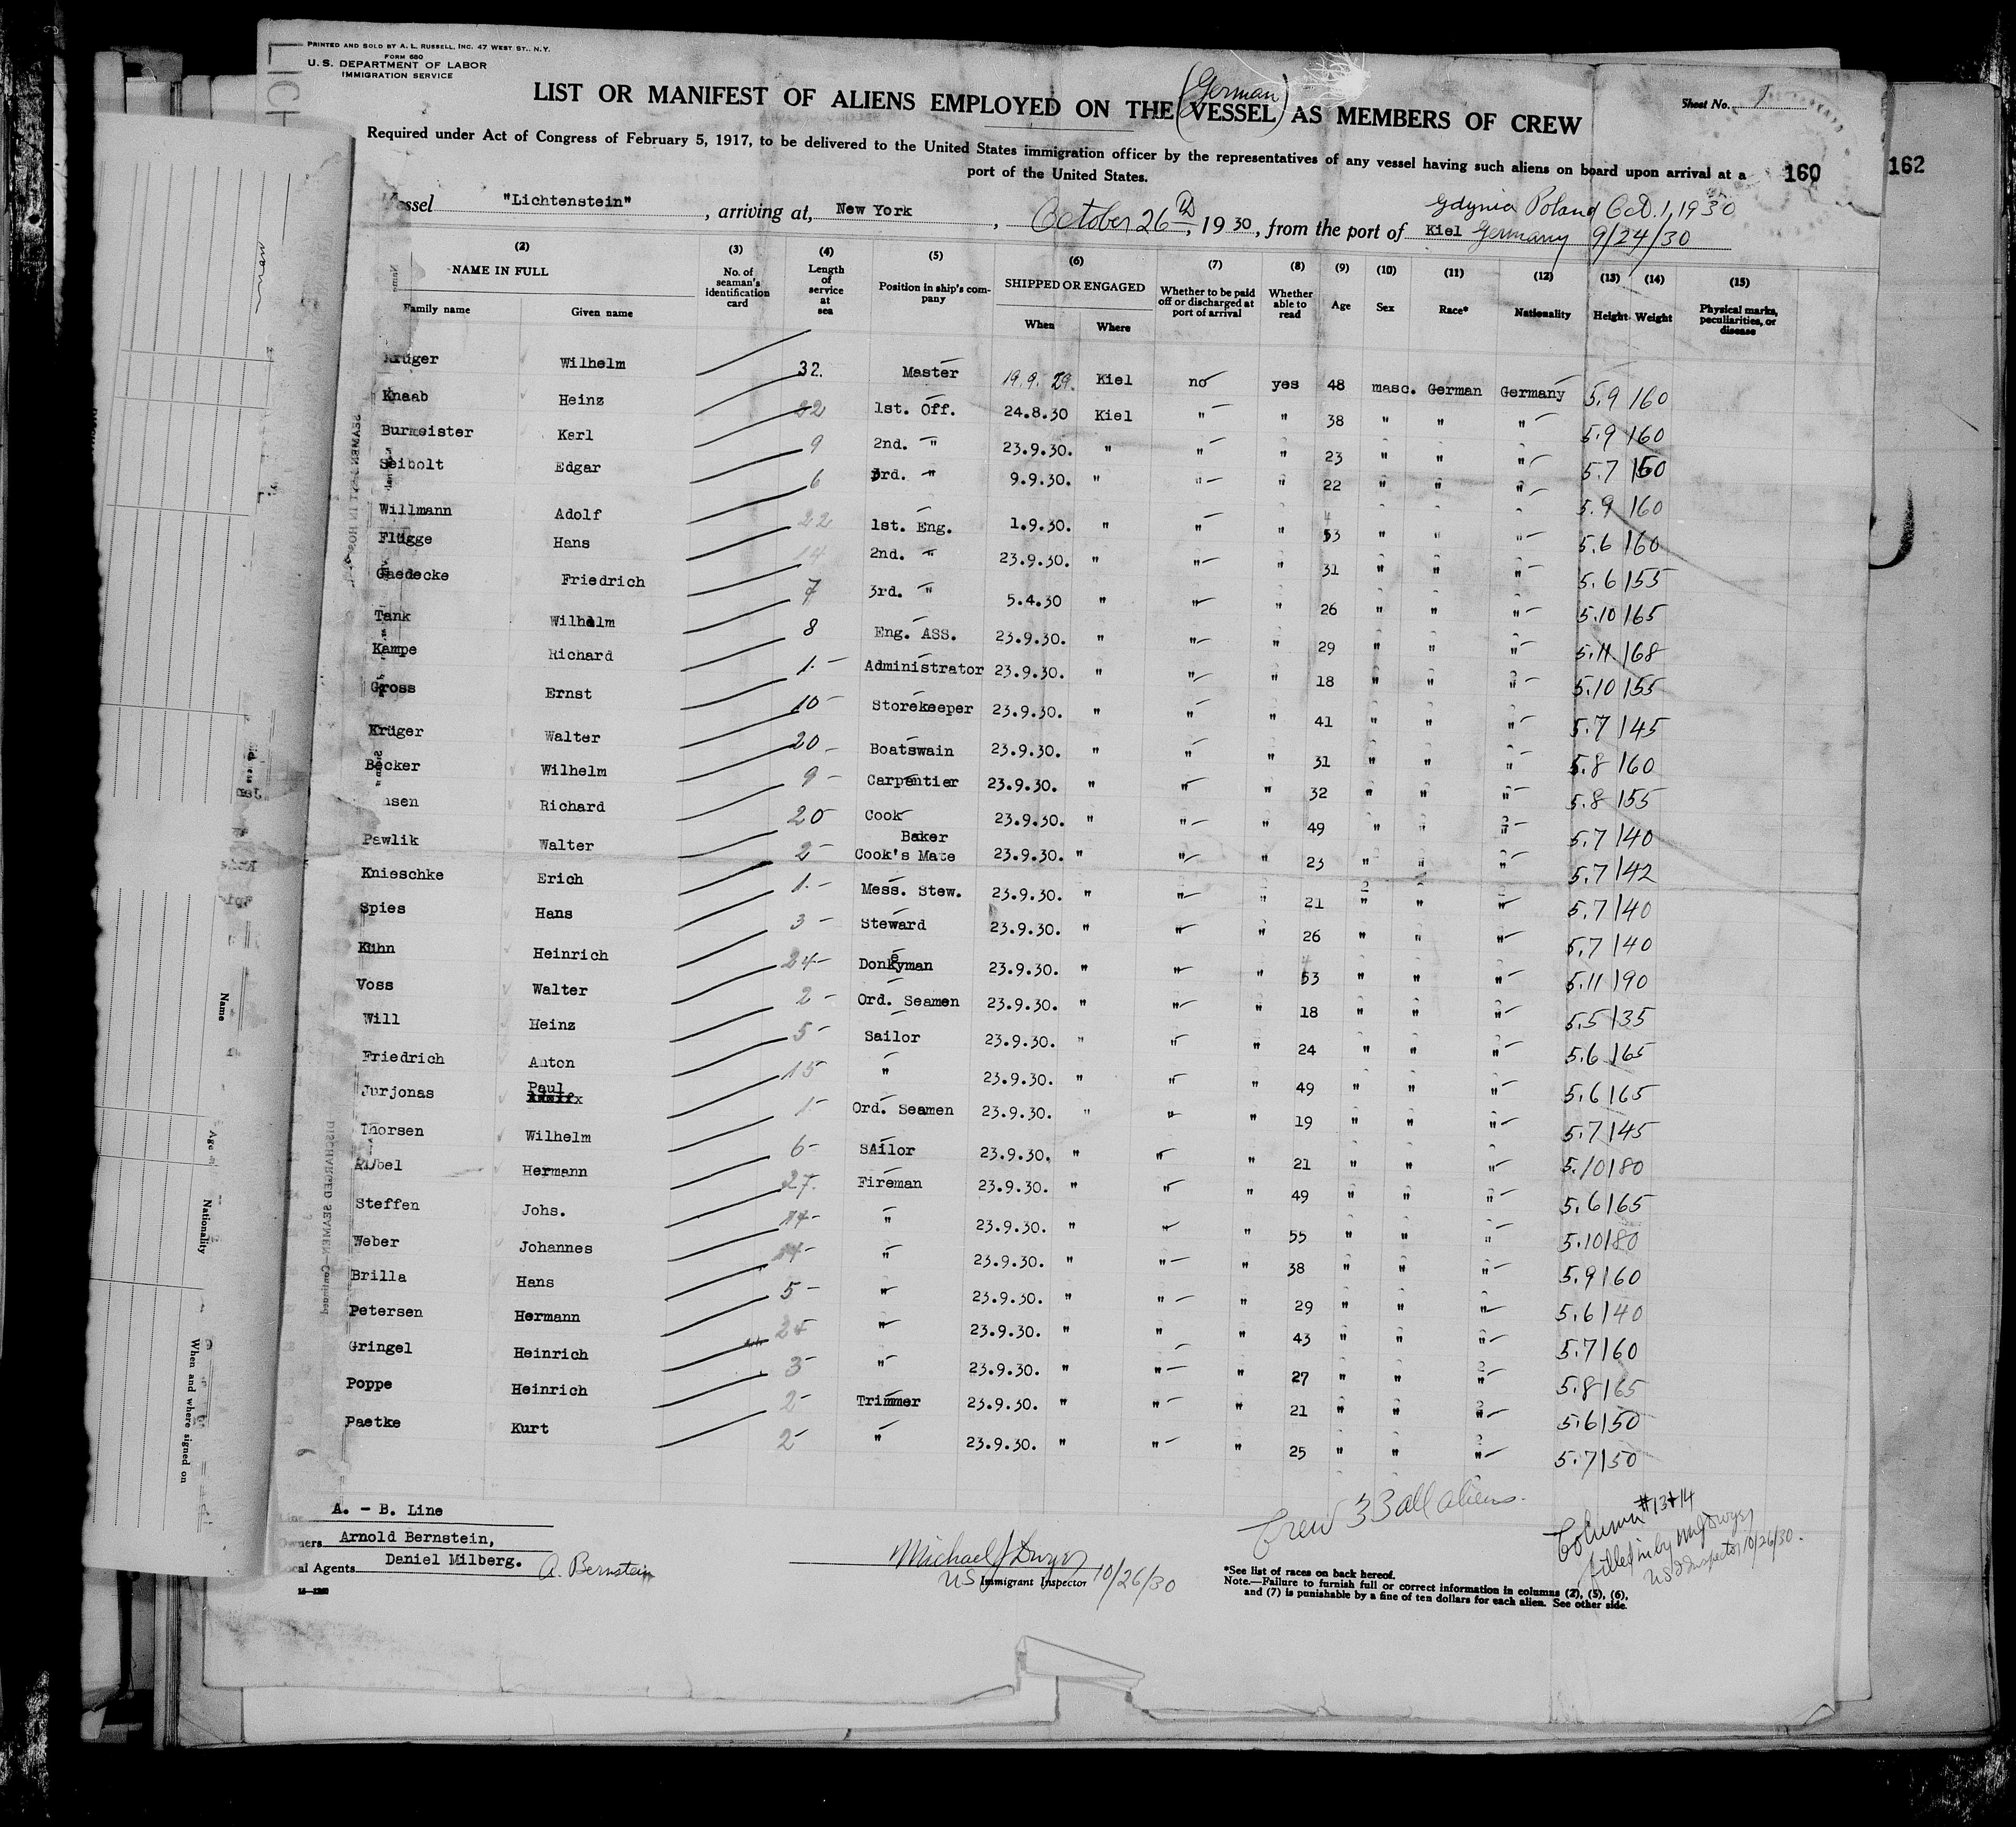 PRINTED AND SOLD BY A. L. RUSSELL, INC. 47 WEST ST., N.Y.
FORM 680
U. S. DEPARTMENT OF LABOR
IMMIGRATION SERVICE
Sheet No. 1
(German)
LIST OR MANIFEST OF ALIENS EMPLOYED ON THE (VESSEL) AS MEMBERS OF CREW
Required under Act of Congress of February 5, 1917, to be delivered to the United States immigration officer by the representatives of any vessel having such aliens on board upon arrival at a
port of the United States.
160
162
Gdynia Poland Oct. 1, 1930
Vessel "Lichtenstein", arriving at, New York, October 26th, 1930, from the port of Kiel Germany 9/24/30
(2) (3) (4) (5) (6) (7) (8) (9) (10) (11) (12) (13) (14) (15)
NAME IN FULL Family name Given name No. of seaman's identification card Length of service at sea Position in ship's company SHIPPED OR ENGAGED When Where Whether to be paid off or discharged at port of arrival Whether able to read Age Sex Race* Nationality Height Weight Physical marks, peculiarities, or disease
Krüger Wilhelm 32. Master 19.9.29. Kiel no yes 48 masc. German Germany 5.9 160
Knaab Heinz 22 1st. Off. 24.8.30 Kiel " " 38 " " " 5.9 160
Burmeister Karl 9 2nd. " 23.9.30. " " " 23 " " " 5.7 150
Seibolt Edgar 6 3rd. " 9.9.30. " " " 22 " " " 5.9 160
Willmann Adolf 22 1st. Eng. 1.9.30. " " " 43 " " " 5.6 160
Flügge Hans 14 2nd. " 23.9.30. " " " 31 " " " 5.6 155
Gaedecke Friedrich 7 3rd. " 5.4.30 " " " 26 " " " 5.10 165
Tank Wilhelm 8 Eng. ASS. 23.9.30. " " " 29 " " " 5.11 168
Kampe Richard 1.- Administrator 23.9.30. " " " 18 " " " 5.10 155
Gross Ernst 10- Storekeeper 23.9.30. " " " 41 " " " 5.7 145
Krüger Walter 20- Boatswain 23.9.30. " " " 31 " " " 5.8 160
Becker Wilhelm 9- Carpentier 23.9.30. " " " 32 " " " 5.8 155
nsen Richard 20 Cook 23.9.30. " " " 49 " " " 5.7 140
Pawlik Walter 2- Baker Cook's Mate 23.9.30. " " " 23 " " " 5.7 142
Knieschke Erich 1.- Mess. Stew. 23.9.30. " " " 21 " " " 5.7 140
Spies Hans 3- Steward 23.9.30. " " " 26 " " " 5.7 140
Kühn Heinrich 24- Donkeyman 23.9.30. " " " 53 " " " 5.11 190
Voss Walter 2- Ord. Seamen 23.9.30. " " " 18 " " " 5.5 135
Will Heinz 5- Sailor 23.9.30. " " " 24 " " " 5.6 165
Friedrich Anton 15 " 23.9.30. " " " 49 " " " 5.6 165
Jurjonas Paul 1- Ord. Seamen 23.9.30. " " " 19 " " " 5.7 145
Thorsen Wilhelm 6- SAilor 23.9.30. " " " 21 " " " 5.10 180
Hermann 27. Fireman 23.9.30. " " " 49 " " " 5.6 165
Steffen Johs. 14- " 23.9.30. " " " 55 " " " 5.10 180
Weber Johannes 14- " 23.9.30. " " " 38 " " " 5.9 160
Brilla Hans 5- " 23.9.30. " " " 29 " " " 5.6 140
Petersen Hermann 25 " 23.9.30. " " " 43 " " " 5.7 160
Gringel Heinrich 3- " 23.9.30. " " " 27 " " " 5.8 165
Poppe Heinrich 2- Trimmer 23.9.30. " " " 21 " " " 5.6 150
Paetke Kurt 2- " 23.9.30. " " " 25 " " " 5.7 150
Crew 33 all aliens.
Column #13+14
filled in by MJ Dwyer
US Inspector 10/26/30.
Line A. - B. Line
Owners Arnold Bernstein,
Local Agents Daniel Milberg. A. Bernstein
Michael J Dwyer
US Immigrant Inspector 10/26/30
*See list of races on back hereof.
Note.—Failure to furnish full or correct information in columns (2), (5), (6),
and (7) is punishable by a fine of ten dollars for each alien. See other side.
Name
Age
Nationality
When and where signed on
DISCHARGED SEAMEN—Continued